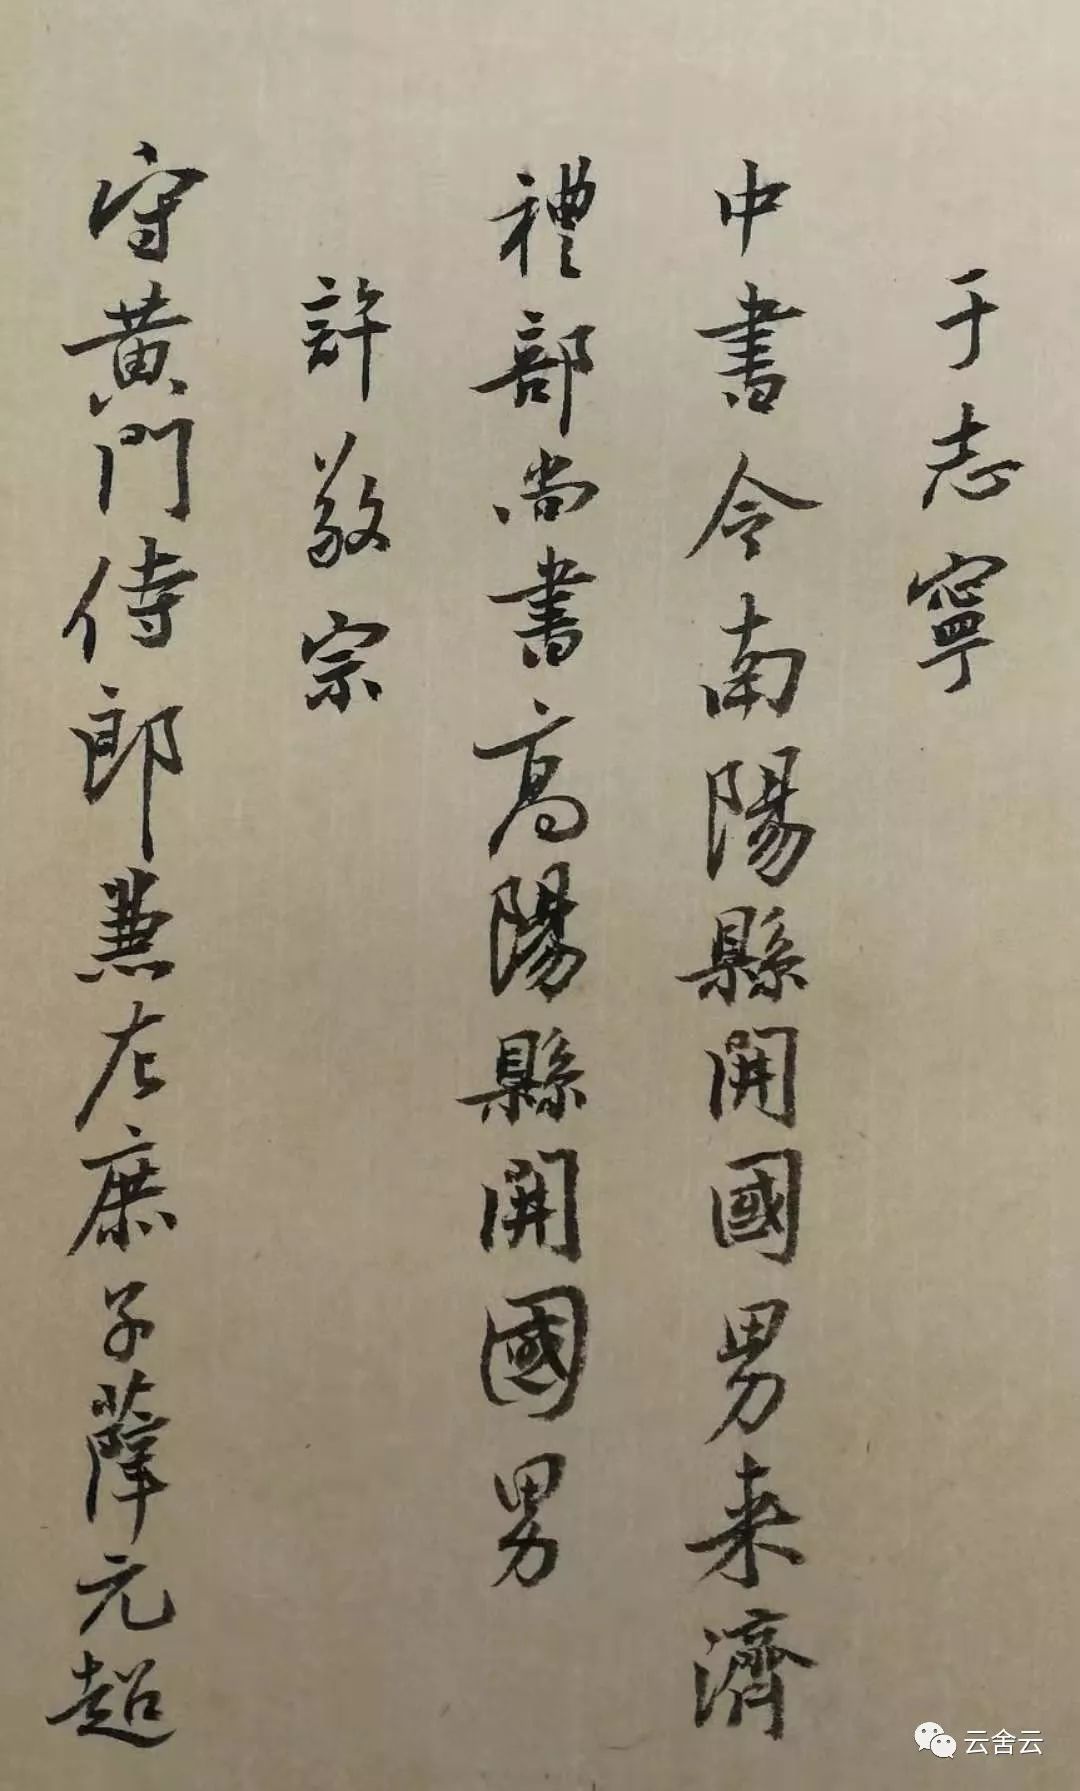 于志寧
中書令南陽縣開國男来濟
禮部尚書高陽縣開國男
許敬宗
守黄門侍郎兼左庶子薛元超
云舍云